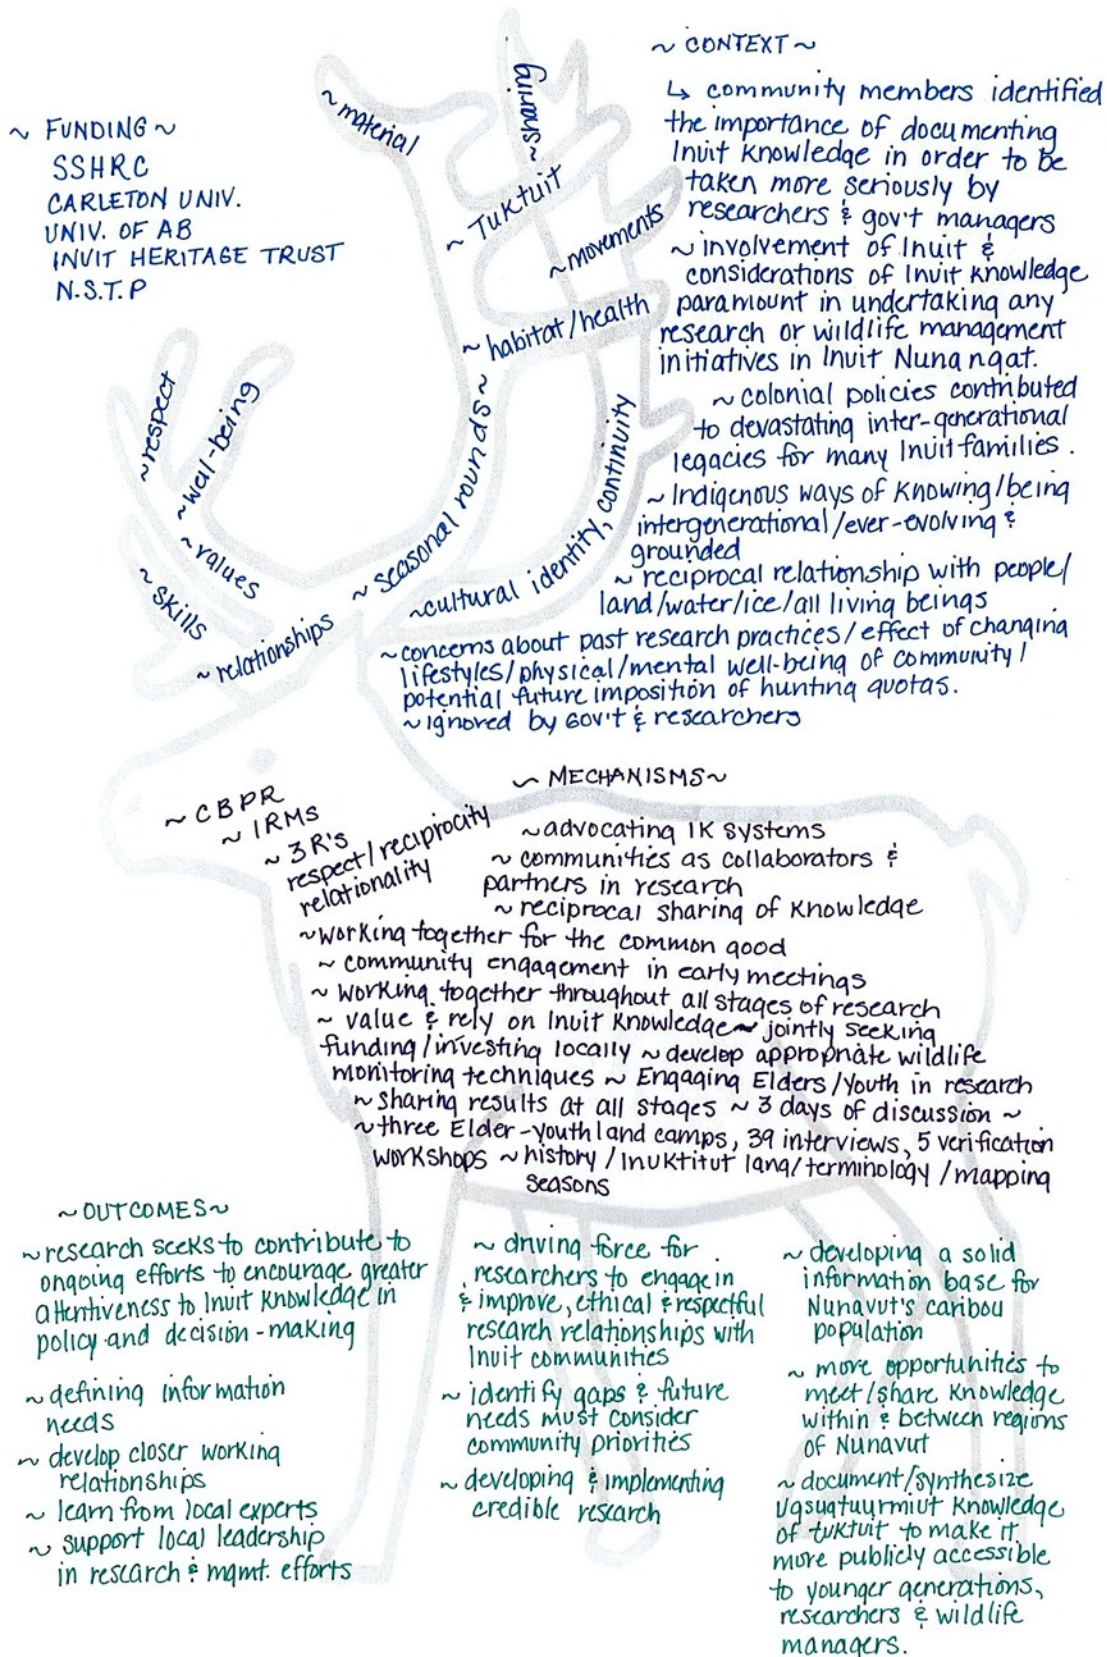 ~ FUNDING ~
SSHRC
CARLETON UNIV.
UNIV. OF AB
INUIT HERITAGE TRUST
N.S.T.P
~ material
~ sharing
~ Tuktuit
~ movements
~ habitat/health
~ seasonal rounds ~
~ cultural identity, continuity
~ respect
~ well-being
~ values
~ skills
~ relationships
~ CONTEXT ~
↳ community members identified
the importance of documenting
Inuit Knowledge in order to be
taken more seriously by
researchers & gov't managers
~ involvement of Inuit &
considerations of Inuit knowledge
paramount in undertaking any
research or wildlife management
initiatives in Inuit Nunangat.
~ colonial policies contributed
to devastating inter-generational
legacies for many Inuit families.
~ Indigenous ways of Knowing/being
intergenerational/ever-evolving &
grounded
~ reciprocal relationship with people/
land/water/ice/all living beings
~ concerns about past research practices/effect of changing
lifestyles/physical/mental well-being of community/
potential future imposition of hunting quotas.
~ ignored by Gov't & researchers
~ CBPR
~ IRMs
~ 3 R's
respect/reciprocity
relationality
~ MECHANISMS ~
~ advocating IK systems
~ communities as collaborators &
partners in research
~ reciprocal sharing of Knowledge
~ working together for the common good
~ community engagement in early meetings
~ working together throughout all stages of research
~ value & rely on Inuit Knowledge ~ jointly seeking
funding/investing locally ~ develop appropriate wildlife
monitoring techniques ~ Engaging Elders/Youth in research
~ sharing results at all stages ~ 3 days of discussion ~
~ three Elder-youth land camps, 39 interviews, 5 verification
workshops ~ history/Inuktitut lang/terminology/mapping
seasons
~ OUTCOMES ~
~ research seeks to contribute to
ongoing efforts to encourage greater
attentiveness to Inuit Knowledge in
policy and decision-making
~ defining information
needs
~ develop closer working
relationships
~ learn from local experts
~ support local leadership
in research & mgmt. efforts
~ driving force for
researchers to engage in
& improve, ethical & respectful
research relationships with
Inuit communities
~ identify gaps & future
needs must consider
community priorities
~ developing & implementing
credible research
~ developing a solid
information base for
Nunavut's caribou
population
~ more opportunities to
meet/share Knowledge
within & between regions
of Nunavut
~ document/synthesize
Uqsuqtuurmiut Knowledge
of tuktuit to make it
more publicly accessible
to younger generations,
researchers & wildlife
managers.